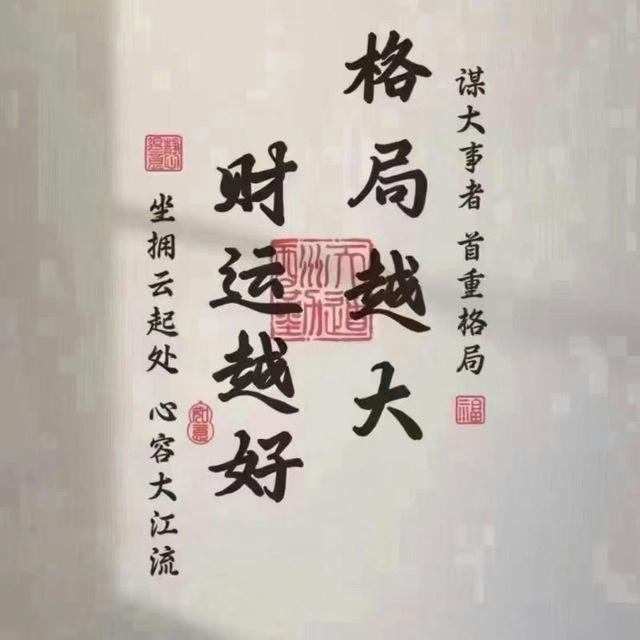 谋大事者 首重格局
福
格局越大
财运越好
天道酬勤
如意
坐拥云起处 心容大江流